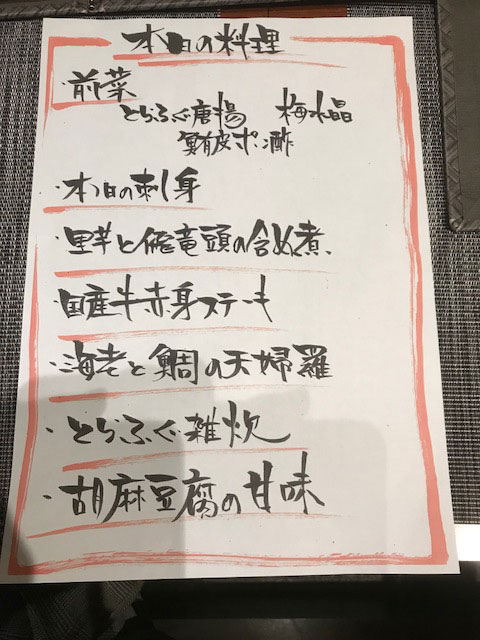 本日の料理
・前菜
とらふぐ唐揚 梅水晶
鮪皮ポン酢
・本日の刺身
・里芋と飛竜頭の含め煮
・国産牛赤身ステーキ
・海老と鯛の天婦羅
・とらふぐ雑炊
・胡麻豆腐の甘味